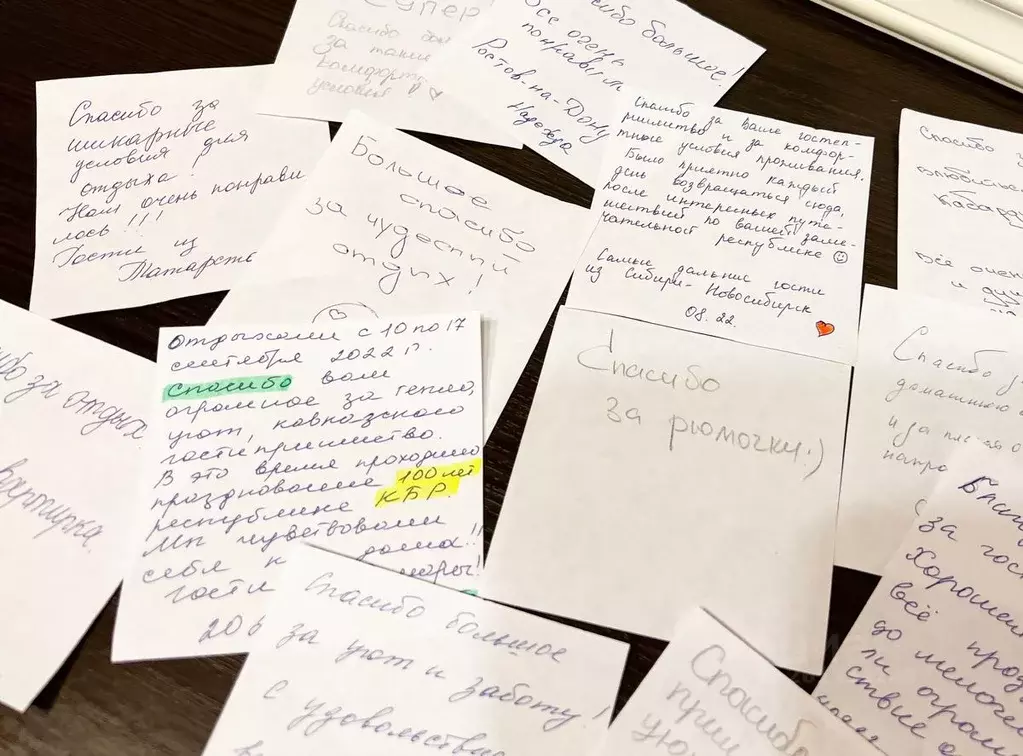 Супер
Спасибо
за такие
комфортн
условия
Спасибо большое!
Все очень
понравил
Ростов-на-Дону
Надежда
Спасибо за
шикарные
условия для
отдыха!
Нам очень понрави
лось!!!
Гости из
Татарсть
Большое
спасибо
за чудесный
отдых!
Спасибо за Ваше гостеп-
риимство и за комфор-
тные условия проживания.
Было приятно каждый
день возвращаться сюда,
после интересных путе-
шествий по вашей заме-
чательной республике
Самые дальние гости
из Сибири - Новосибирск
08. 22.
Спасибо
Кабард
Всё очень
и ду
бо за отдых
Отдыхали с 10 по 17
сентября 2022 г.
Спасибо вам
огромное за тепло,
уют, кавказского
гостиприимство.
В это время проходило
празднование 100 лет
республике КБР.
Мы чувствовали
себя к дома..!!
гости моры!
206
Спасибо
за рюмочки:)
Спасибо
домашнюю
и за
напро
Спасибо большое
за уют и заботу!
С удовольствие
Спасибо
при
ую
за гос
Хороше
всё про
до мелоче
ли огром
ствие